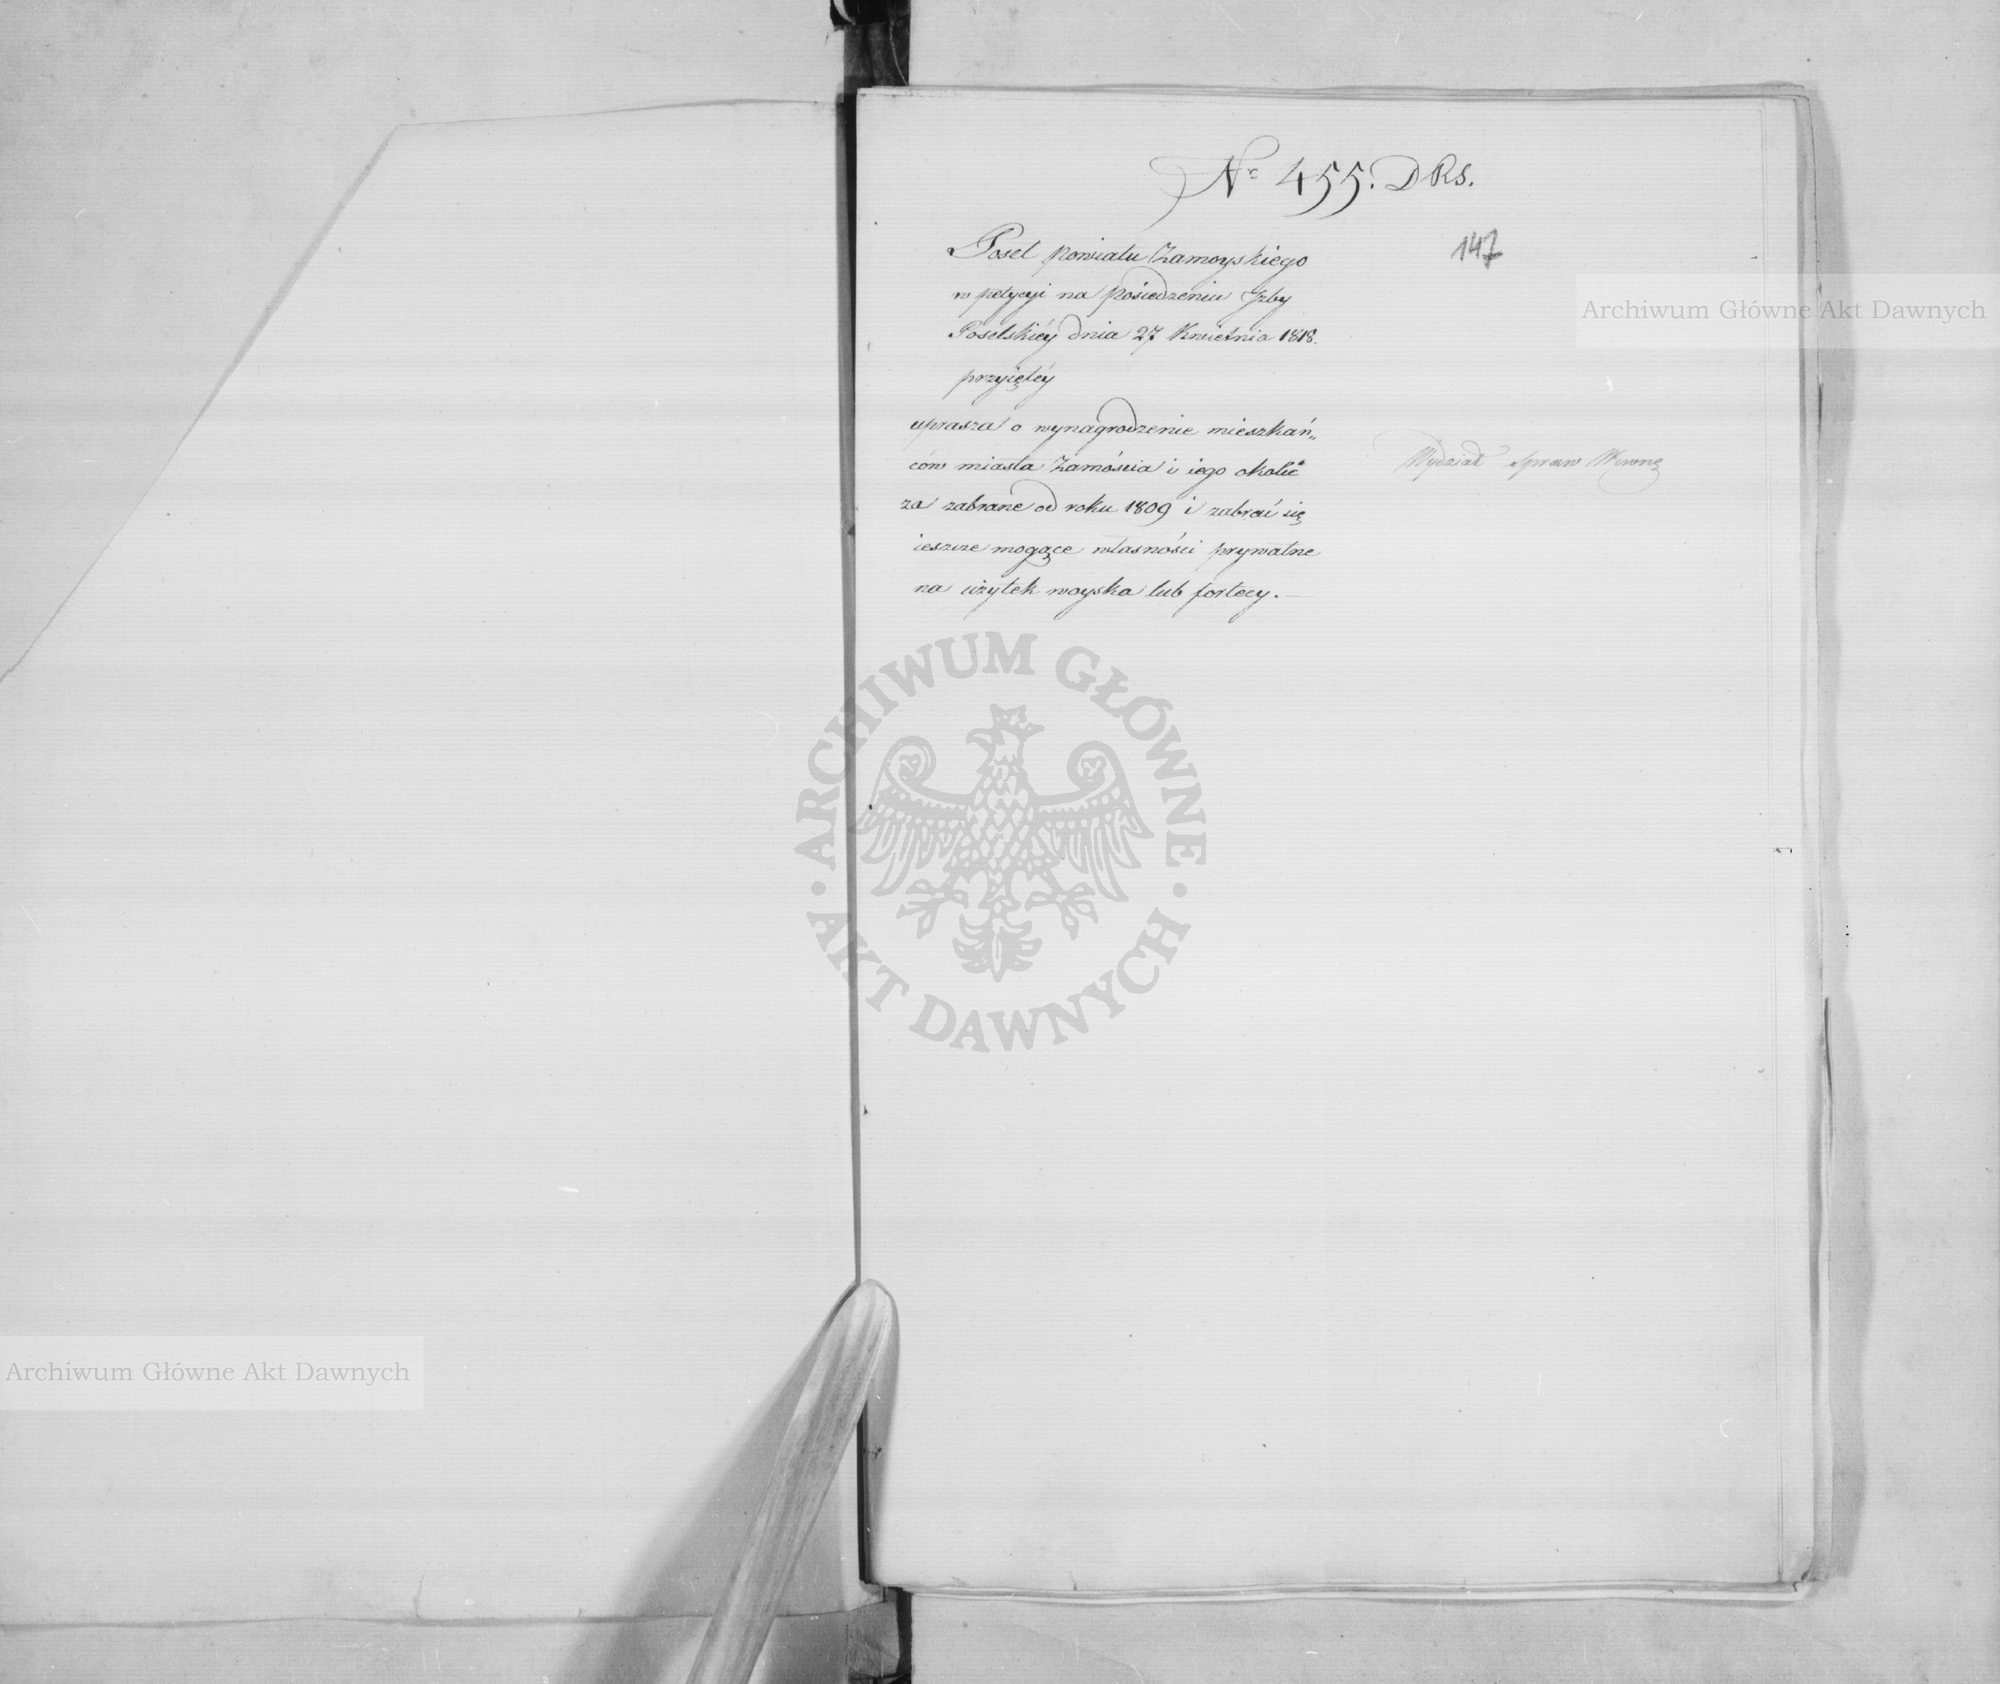 Nr 455. DRS.
147
Poseł powiatu Zamoyskiego
w petycyi na posiedzeniu Jzby
Poselskiéy dnia 27 Kwietnia 1818.
przyiętéy
uprasza o wynagrodzenie mieszkań„
ców miasta Zamóścia i iego okolic
za zabrane od roku 1809 i zabrać się
ieszcze mogące własności prywatne
na użytek woyska lub fortecy. —
Wydział Spraw Wewnę
Archiwum Główne Akt Dawnych
ARCHIWUM GŁÓWNE · AKT DAWNYCH ·
Archiwum Główne Akt Dawnych